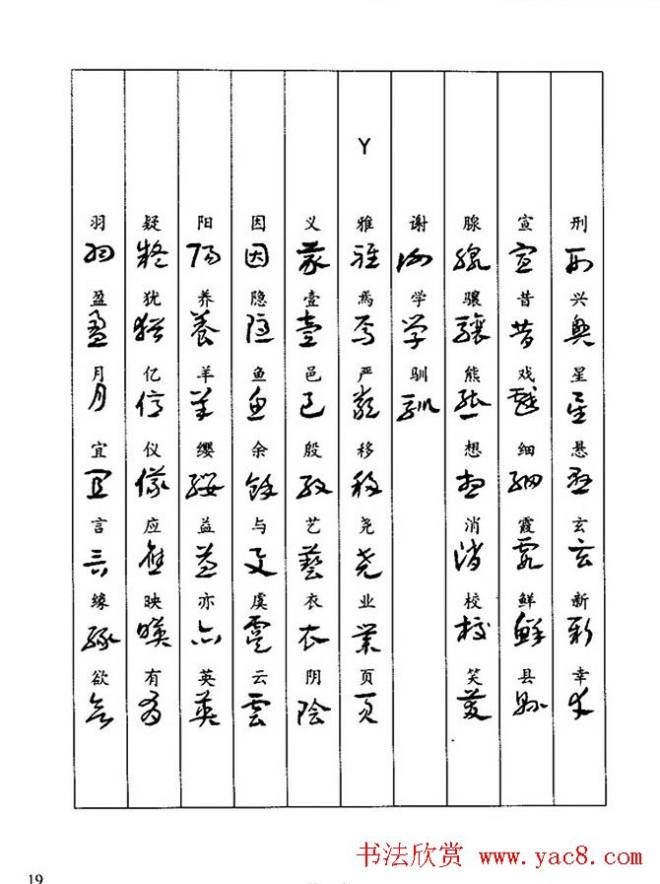 刑兴星悬玄新幸
宣昔戏细霞鲜县
腺骧熊想消校笑
谢学驯
Y
雅焉严移尧业页
义壹邑殷艺衣阴
因隐鱼余与虞云
阳养羊缨益亦英
疑犹亿仪应映有
羽盈月宜言缘欲
19
书法欣赏 www.yac8.com